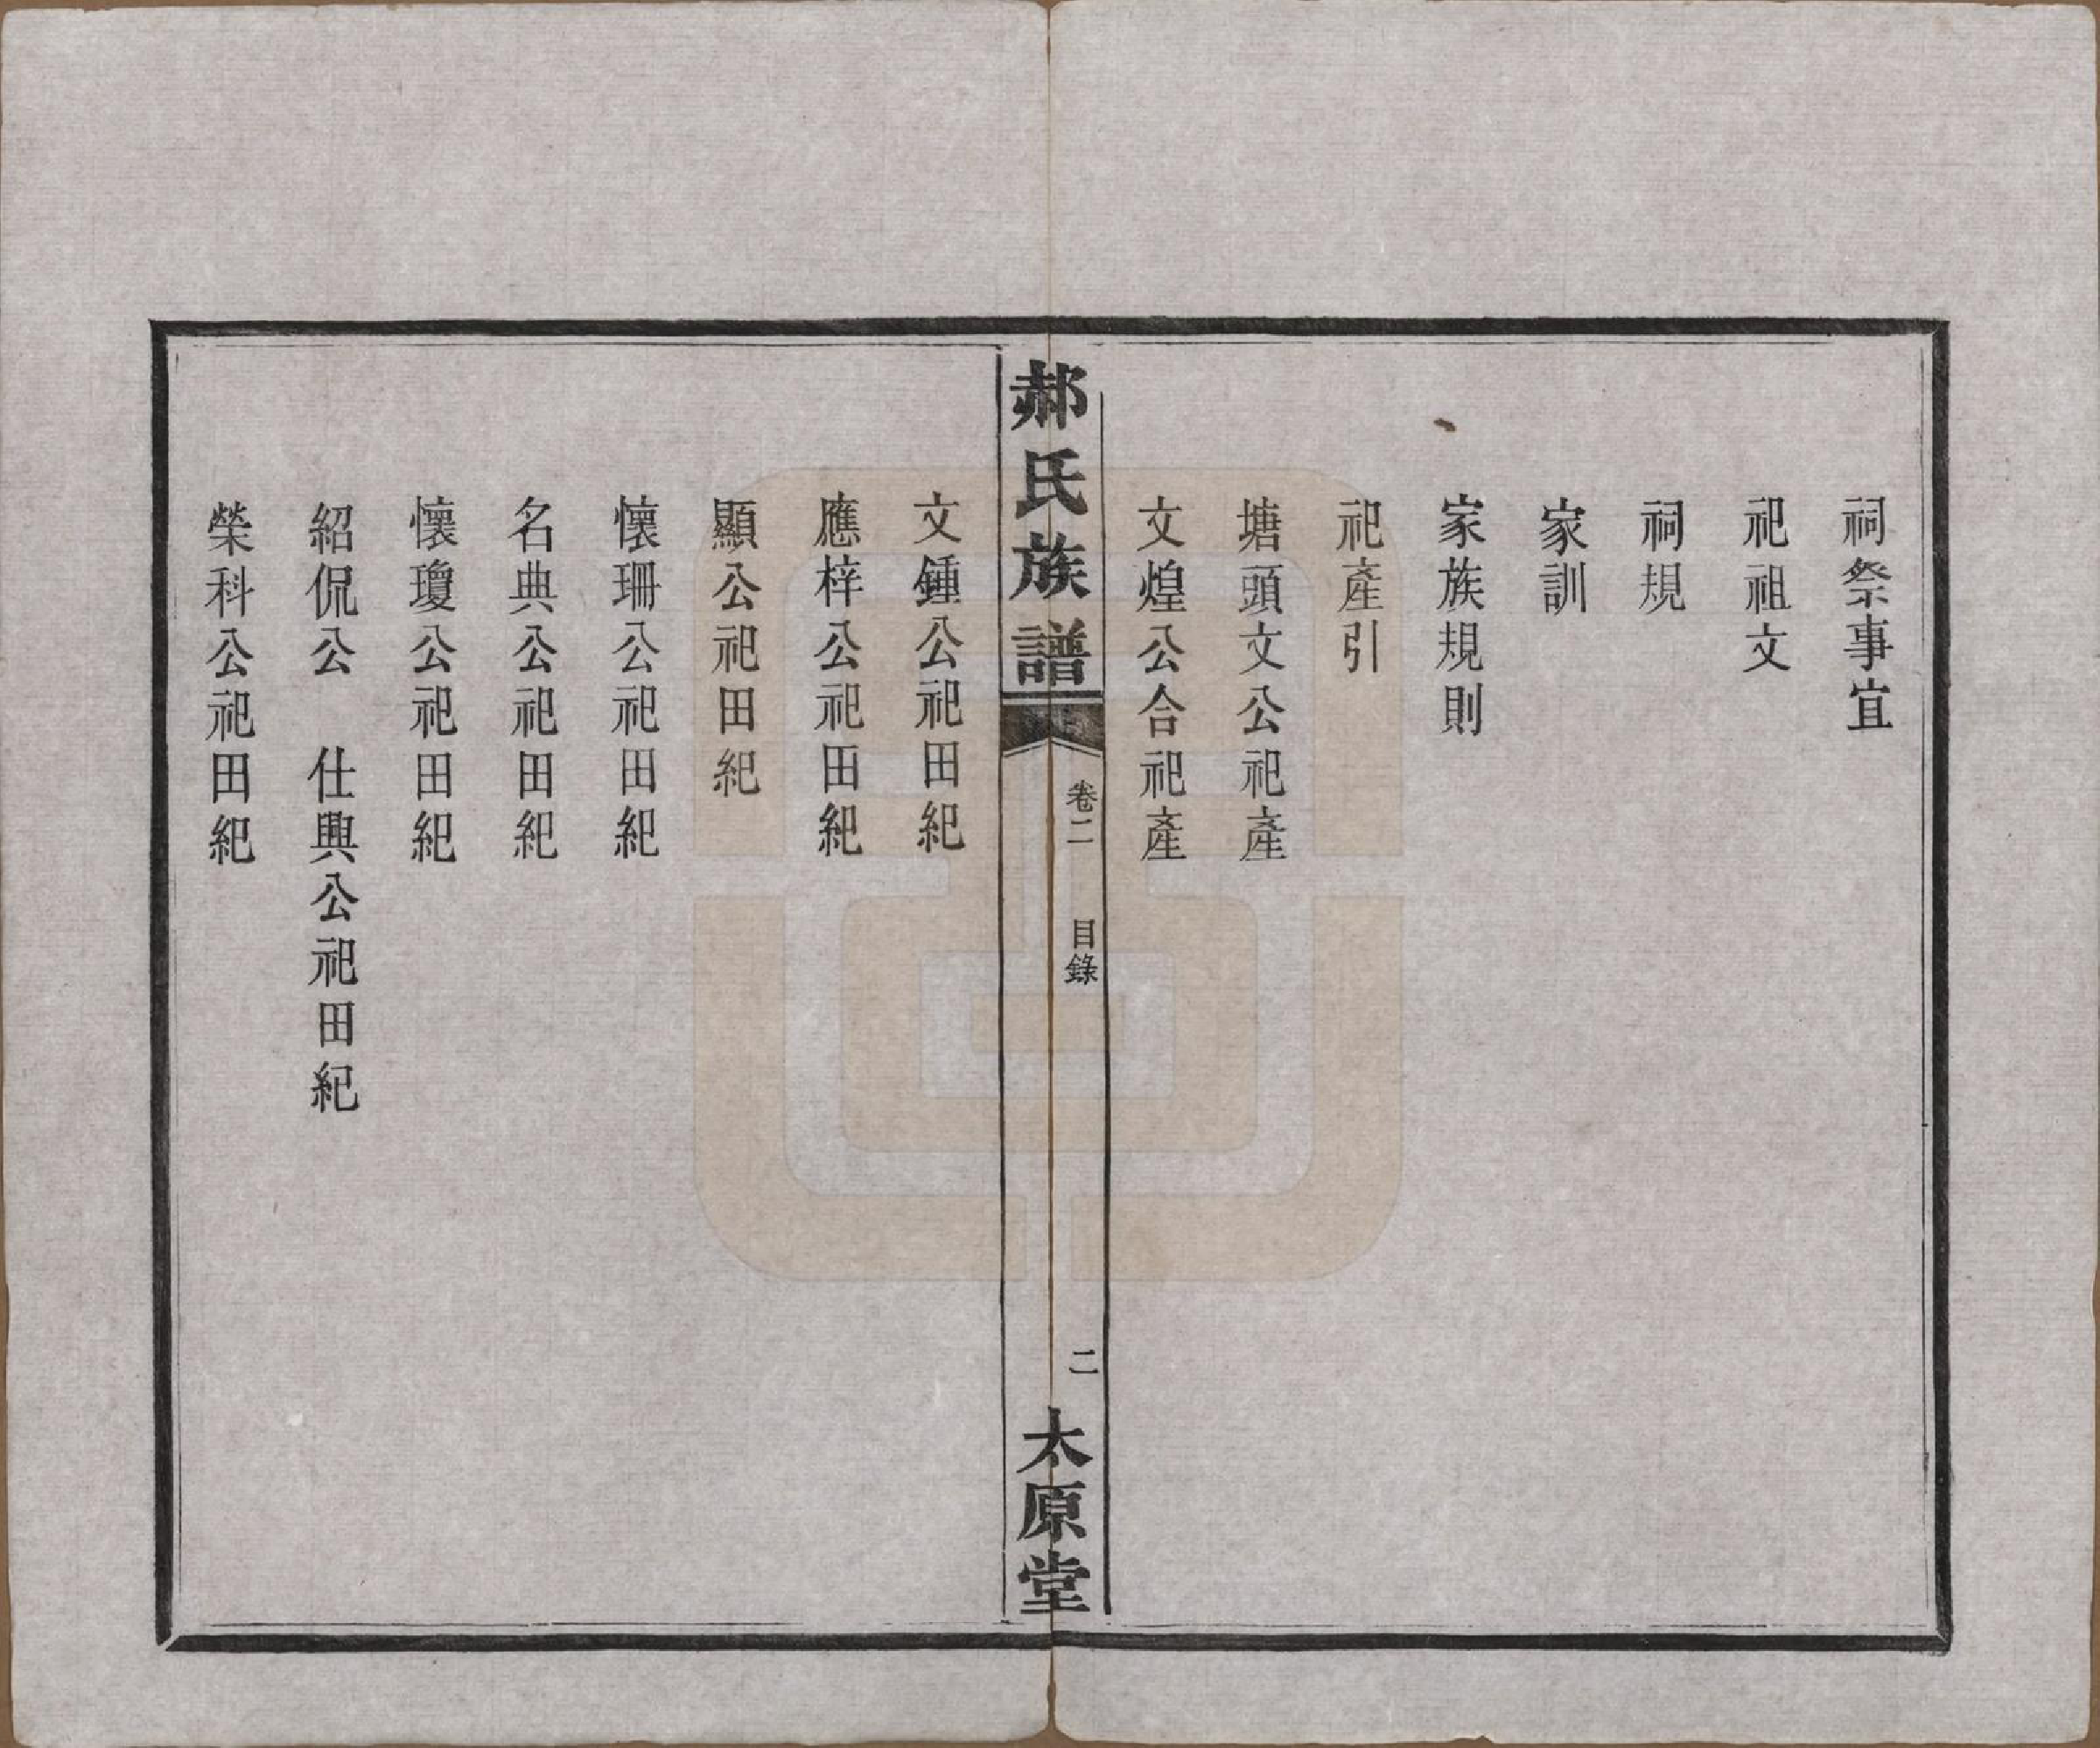 祠祭事宜
祀祖文
祠規
家訓
家族規則
祀產引
塘頭文公祀產
文煌公合祀產
郝氏族譜
卷二 目錄
二
太原堂
文鍾公祀田紀
應梓公祀田紀
顯公祀田紀
懷珊公祀田紀
名典公祀田紀
懷瓊公祀田紀
紹侃公 仕興公祀田紀
榮科公祀田紀